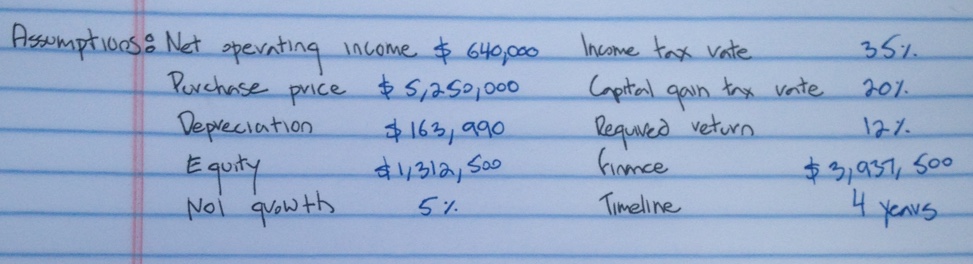 Assumptions: Net operating income $ 640,000 Income tax rate 35%
Purchase price $ 5,250,000 Capital gain tax rate 20%
Depreciation $ 163,990 Required return 12%
Equity $ 1,312,500 Finance $ 3,937,500
NoI growth 5% Timeline 4 years